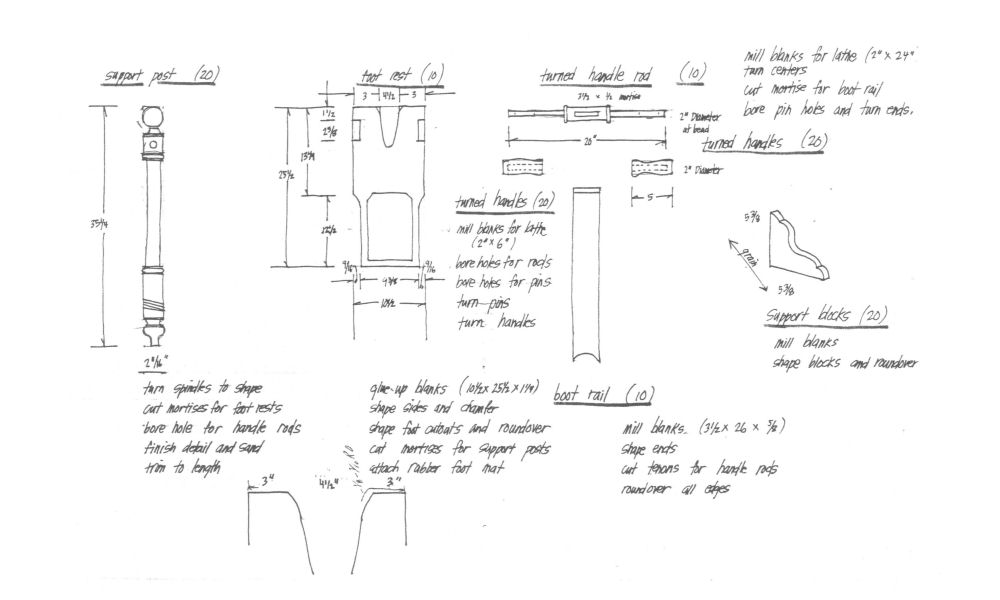 support post (20)
35 1/4
2 11/16"
turn spindles to shape
cut mortises for foot rests
bore hole for handle rods
finish detail and sand
trim to length
foot rest (10)
3 4 1/2 3
1 1/2
2 3/8
13 1/4
25 1/2
12 1/2
9/16
9/16
10 1/2
glue-up blanks (10 1/2 x 25 1/2 x 1 1/4)
shape sides and chamfer
shape foot cutouts and roundover
cut mortises for support posts
attach rubber foot mat
3" 4 1/2" 3"
turned handle rod (10)
mortise
2" Diameter
at bead
20"
2" Diameter
5
turned handles (20)
mill blanks for lathe
(2" x 6")
bore holes for rods
bore holes for pins
turn pins
turn handles
boot rail (10)
mill blanks. (3 1/2 x 26 x 5/8)
shape ends
cut tenons for handle rods
roundover all edges
mill blanks for lathe (2" x 24"
turn centers
cut mortise for boot rail
bore pin holes and turn ends.
turned handles (20)
5 3/8
grain
5 3/8
support blocks (20)
mill blanks
shape blocks and roundover